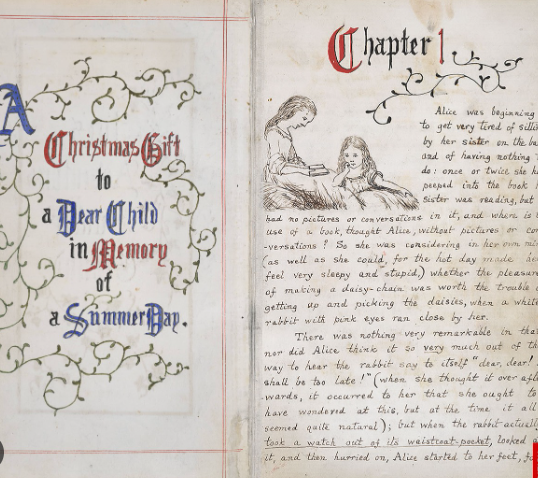 A
Christmas Gift
to
a Dear Child
in Memory
of
a Summer Day.
Chapter 1
Alice was beginning
to get very tired of
by her sister on the
and of having nothing
do: once or twice she
peeped into the book
sister was reading, but
had no pictures or conversations in it, and where is
use of a book, thought Alice, without pictures or
-versations? So she was considering in her own
(as well as she could, for the hot day made
feel very sleepy and stupid,) whether the pleasure
of making a daisy-chain was worth the trouble
getting up and picking the daisies, when a
rabbit with pink eyes ran close by her.
There was nothing very remarkable in
nor did Alice think it so very much out of
way to hear the rabbit say to itself "dear, dear!
shall be too late!" (when she thought it over
wards, it occurred to her that she ought
have wondered at this, but at the time it all
seemed quite natural); but when the rabbit
took a watch out of its waistcoat-pocket, looked
it, and then hurried on, Alice started to her feet,